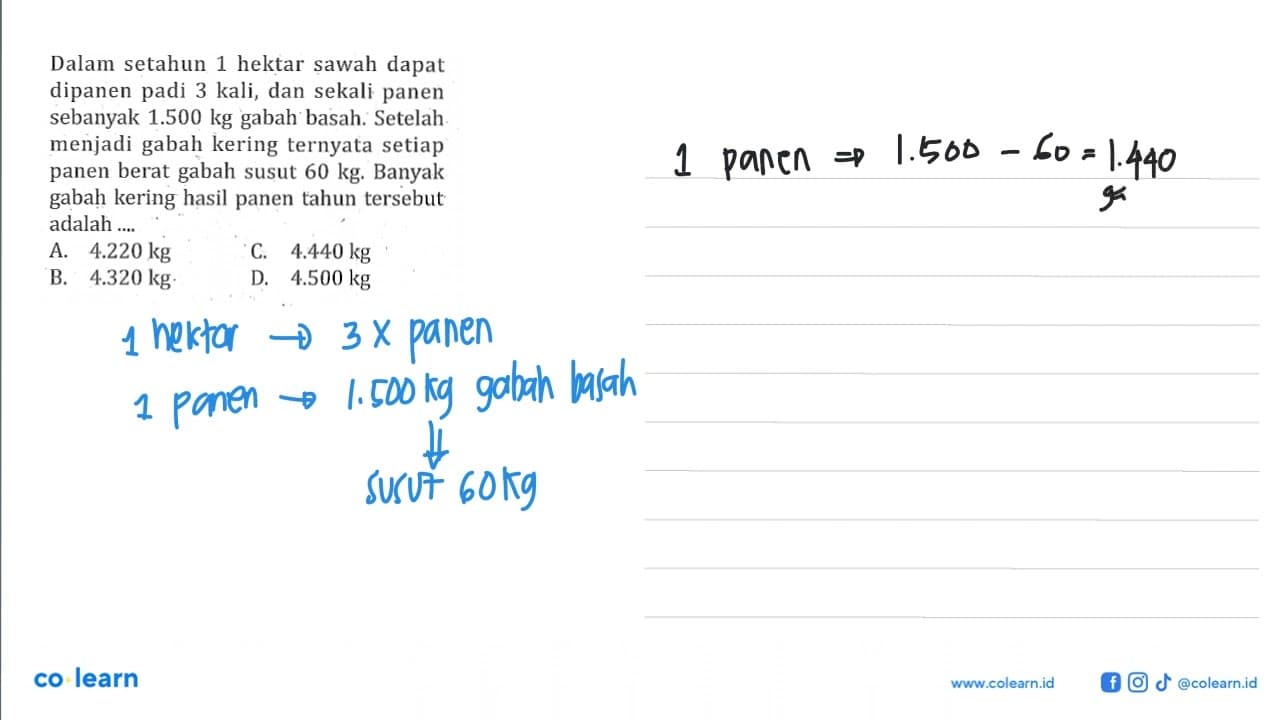 Dalam setahun 1 hektar sawah dapat
dipanen padi 3 kali, dan sekali panen
sebanyak 1.500 kg gabah basah. Setelah
menjadi gabah kering ternyata setiap
panen berat gabah susut 60 kg. Banyak
gabah kering hasil panen tahun tersebut
adalah ....
A. 4.220 kg C. 4.440 kg
B. 4.320 kg D. 4.500 kg
1 hektar → 3 x panen
1 panen → 1.500 kg gabah basah
⇓
susut 60 kg
1 panen ⇒ 1.500 - 60 = 1.440
co learn
www.colearn.id
@colearn.id